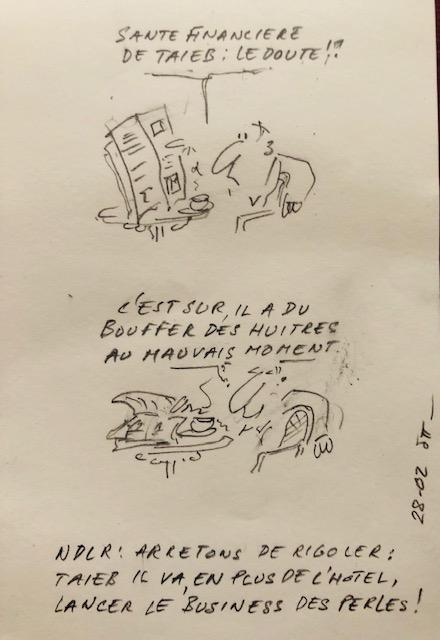 SANTE FINANCIERE
DE TAIEB : LE DOUTE !?
C'EST SUR, IL A DU
BOUFFER DES HUITRES
AU MAUVAIS MOMENT.
28-02
NDLR : ARRETONS DE RIGOLER :
TAIEB IL VA, EN PLUS DE L'HOTEL,
LANCER LE BUSINESS DES PERLES !